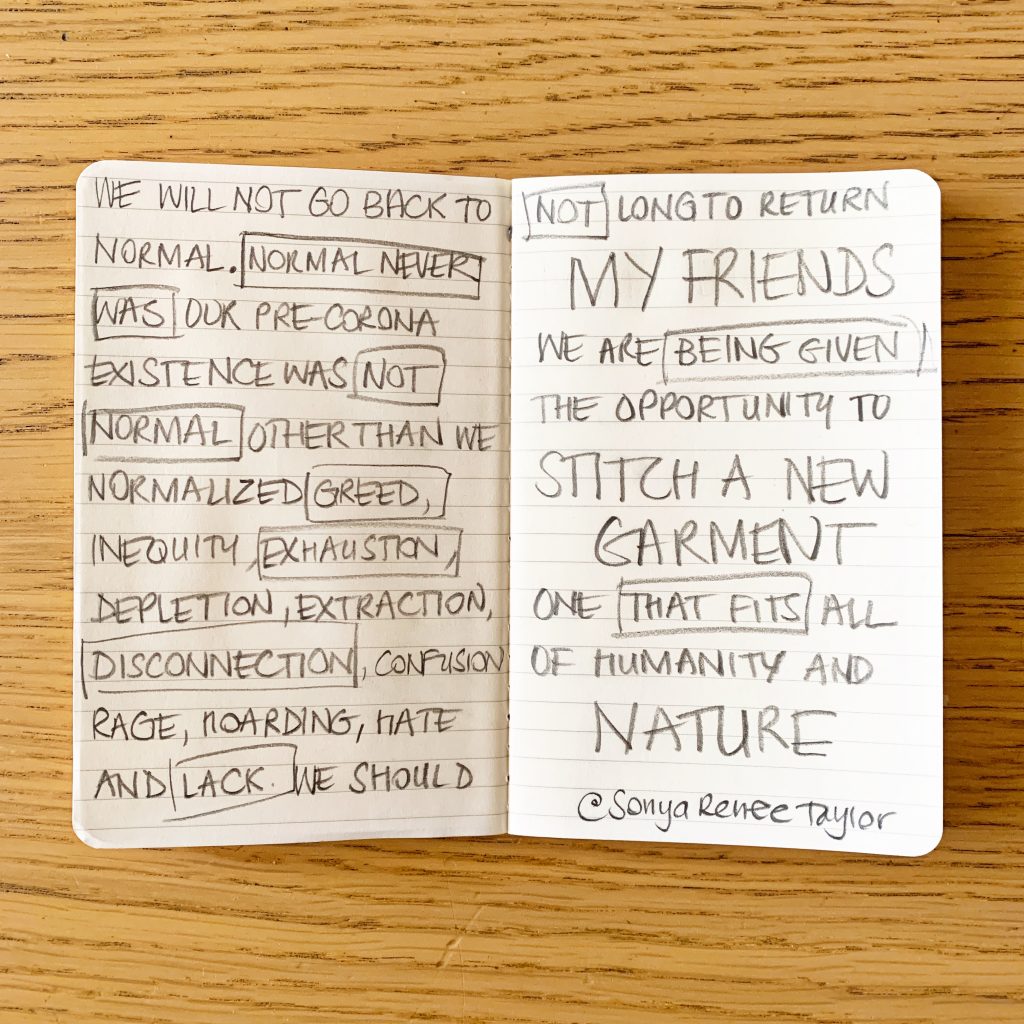 WE WILL NOT GO BACK TO
NORMAL. NORMAL NEVER
WAS OUR PRE-CORONA
EXISTENCE WAS NOT
NORMAL OTHER THAN WE
NORMALIZED GREED,
INEQUITY, EXHAUSTION,
DEPLETION, EXTRACTION,
DISCONNECTION, CONFUSION
RAGE, HOARDING, HATE
AND LACK. WE SHOULD
NOT LONG TO RETURN
MY FRIENDS
WE ARE BEING GIVEN
THE OPPORTUNITY TO
STITCH A NEW
GARMENT
ONE THAT FITS ALL
OF HUMANITY AND
NATURE
@Sonya Renee Taylor